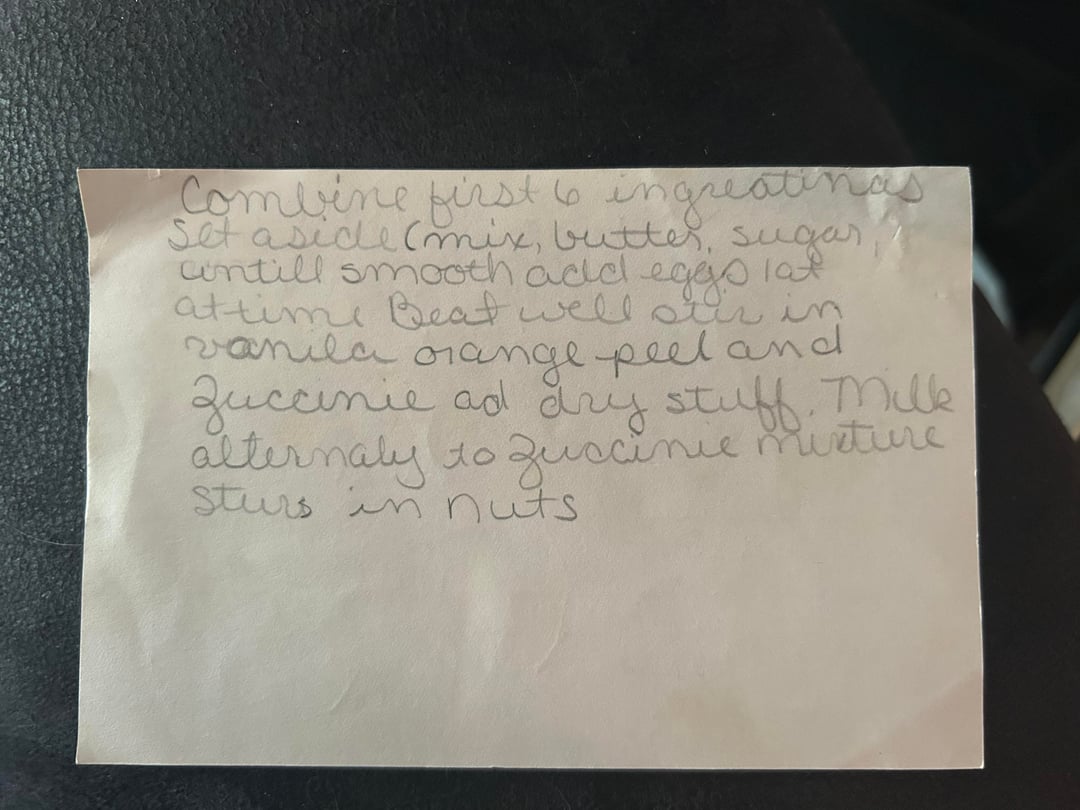 Combine first 6 ingreatinas
Set aside (mix, butter, sugar,
untill smooth add eggs 1at
at time Beat well stir in
vanila orange peel and
Zuccinie ad dry stuff. Milk
alternaly to Zuccinie mixture
sturs in nuts